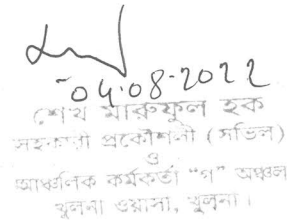 04.08.2022
শেখ মারুফুল হক
সহকারী প্রকৌশলী (সিভিল)
ও
আঞ্চলিক কর্মকর্তা “গ” অঞ্চল
খুলনা ওয়াসা, খুলনা।